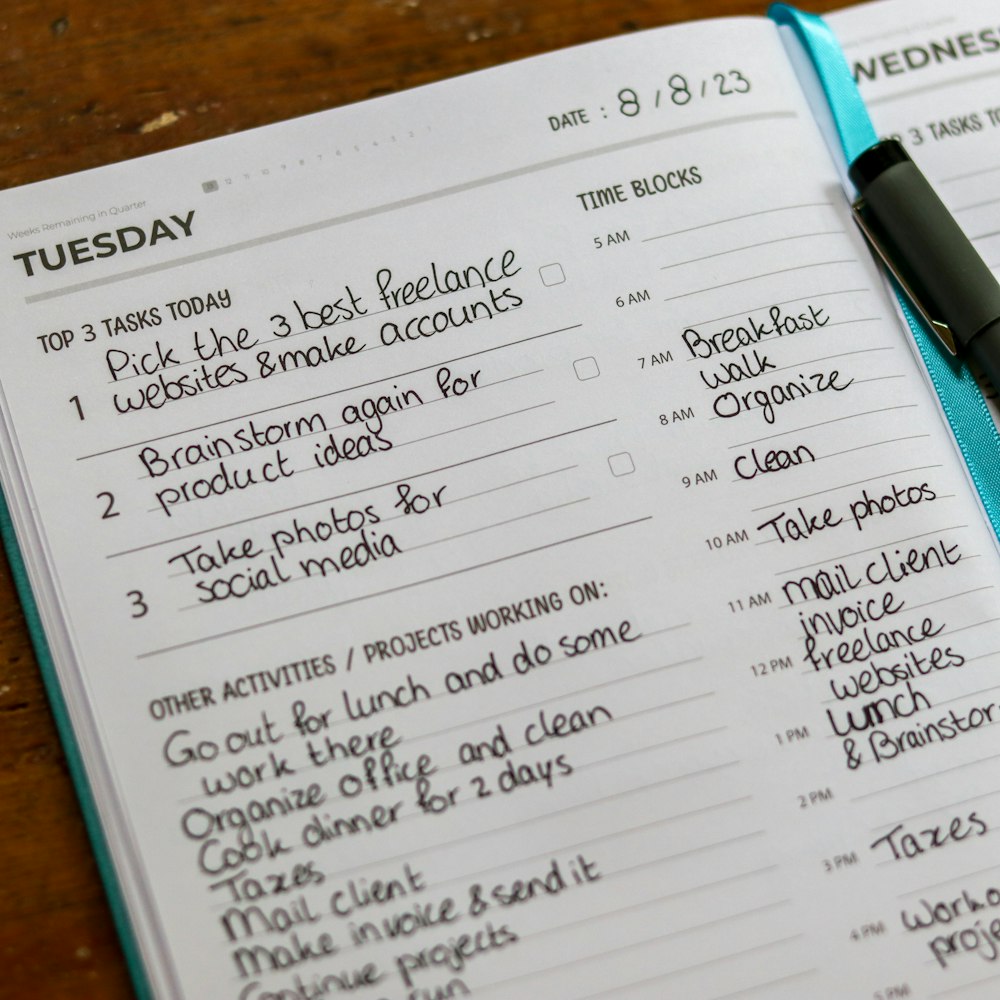 Weeks Remaining in Quarter
12 11 10 9 8 7 6 5 4 3 2 1
TUESDAY
DATE : 8 / 8 / 23
TOP 3 TASKS TODAY
1 Pick the 3 best freelance
websites & make accounts
2 Brainstorm again for
product ideas
3 Take photos for
social media
OTHER ACTIVITIES / PROJECTS WORKING ON:
Go out for lunch and do some
work there
Organize office and clean
Cook dinner for 2 days
Taxes
Mail client
Make invoice & send it
Continue projects
run
TIME BLOCKS
5 AM
6 AM
7 AM Breakfast
walk
8 AM Organize
9 AM Clean
10 AM Take photos
11 AM mail client
invoice
12 PM freelance
websites
1 PM Lunch
& Brainstor
2 PM
3 PM Taxes
4 PM Worko
proje
5 PM
WEDNES
P 3 TASKS TO